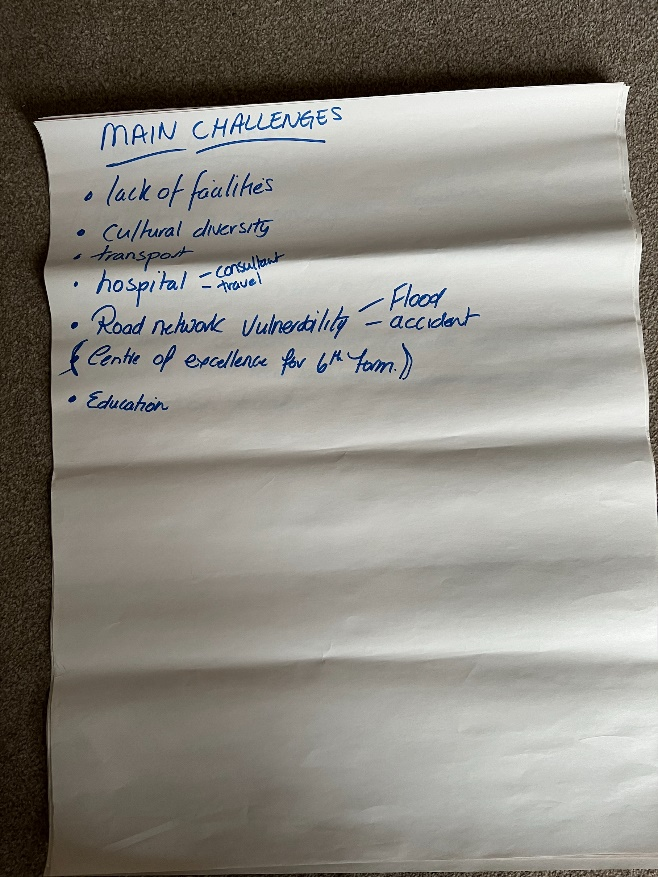 MAIN CHALLENGES
• lack of facilities
• Cultural diversity
• transport
• hospital – consultant
– travel
• Road network Vulnerability – Flood
– accident
(Centre of excellence for 6th form.)
• Education